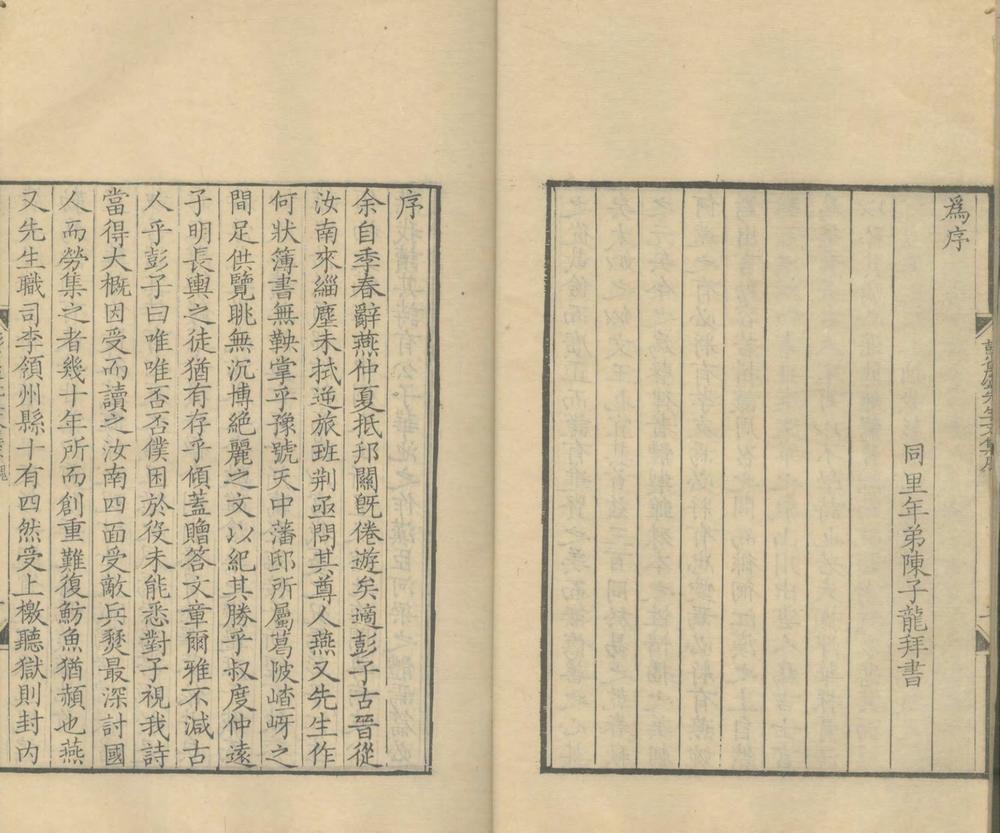 為序
同里年弟陳子龍拜書
序
余自季春辭燕仲夏抵邦關旣倦遊矣適彭子古晉從
汝南來緇塵未拭逆旅班荆亟問其尊人燕又先生作
何狀簿書無鞅掌乎豫號天中藩邸所屬葛陂嵖岈之
間足供覽眺無沉博絶麗之文以紀其勝乎叔度仲遠
子明長輿之徒猶有存乎傾蓋贈答文章爾雅不減古
人乎彭子曰唯唯否否僕困於役未能悉對子視我詩
當得大概因受而讀之汝南四面受敵兵燹最深討國
人而勞集之者幾十年所而創重難復魴魚猶頳也燕
又先生職司李領州縣十有四然受上檄聽獄則封内